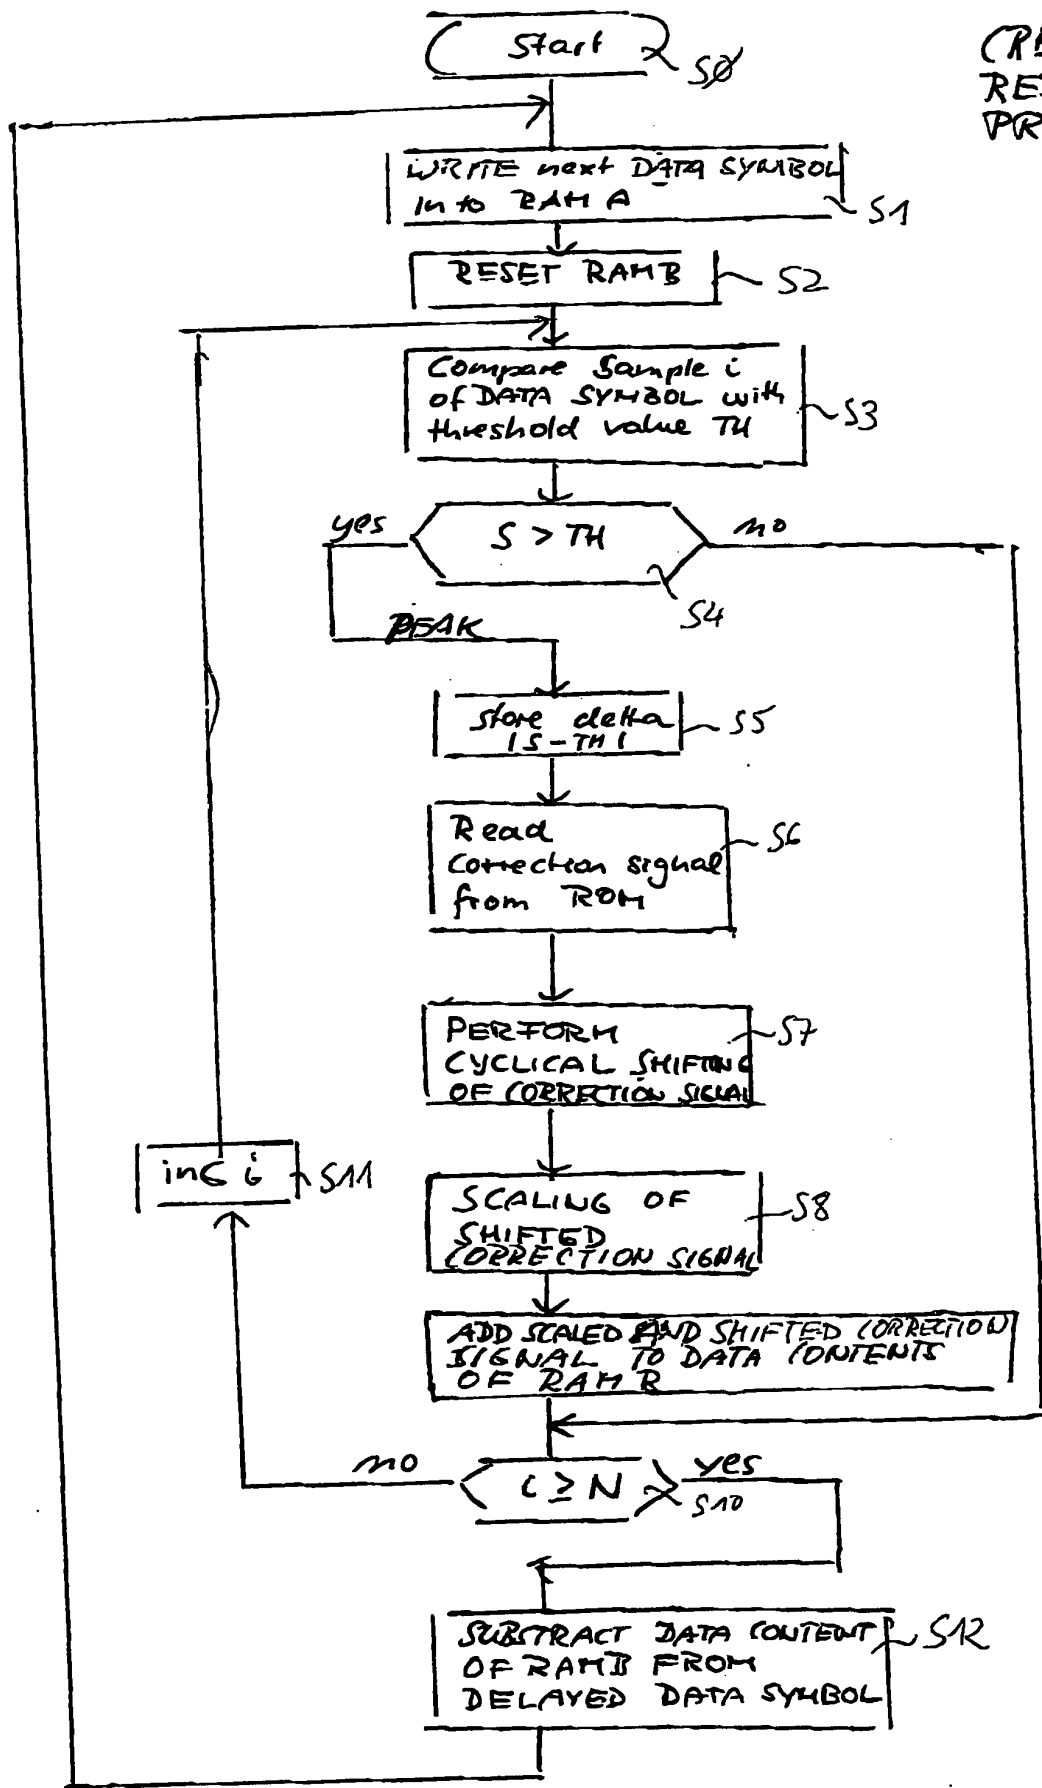 Start
S0
RES
PR
WRITE next DATA SYMBOL
in to RAM A
S1
RESET RAMB
S2
Compare Sample i
of DATA SYMBOL with
threshold value TH
S3
yes
S > TH
no
S4
PEAK
store delta
|S-TH|
S5
Read
correction signal
from ROM
S6
PERFORM
CYCLICAL SHIFTING
OF CORRECTION SIGNAL
S7
inc i
S11
SCALING OF
SHIFTED
CORRECTION SIGNAL
S8
ADD SCALED AND SHIFTED CORRECTION
SIGNAL TO DATA CONTENTS
OF RAM B
no
i ≥ N
yes
S10
SUBSTRACT DATA CONTENT
OF RAMB FROM
DELAYED DATA SYMBOL
S12